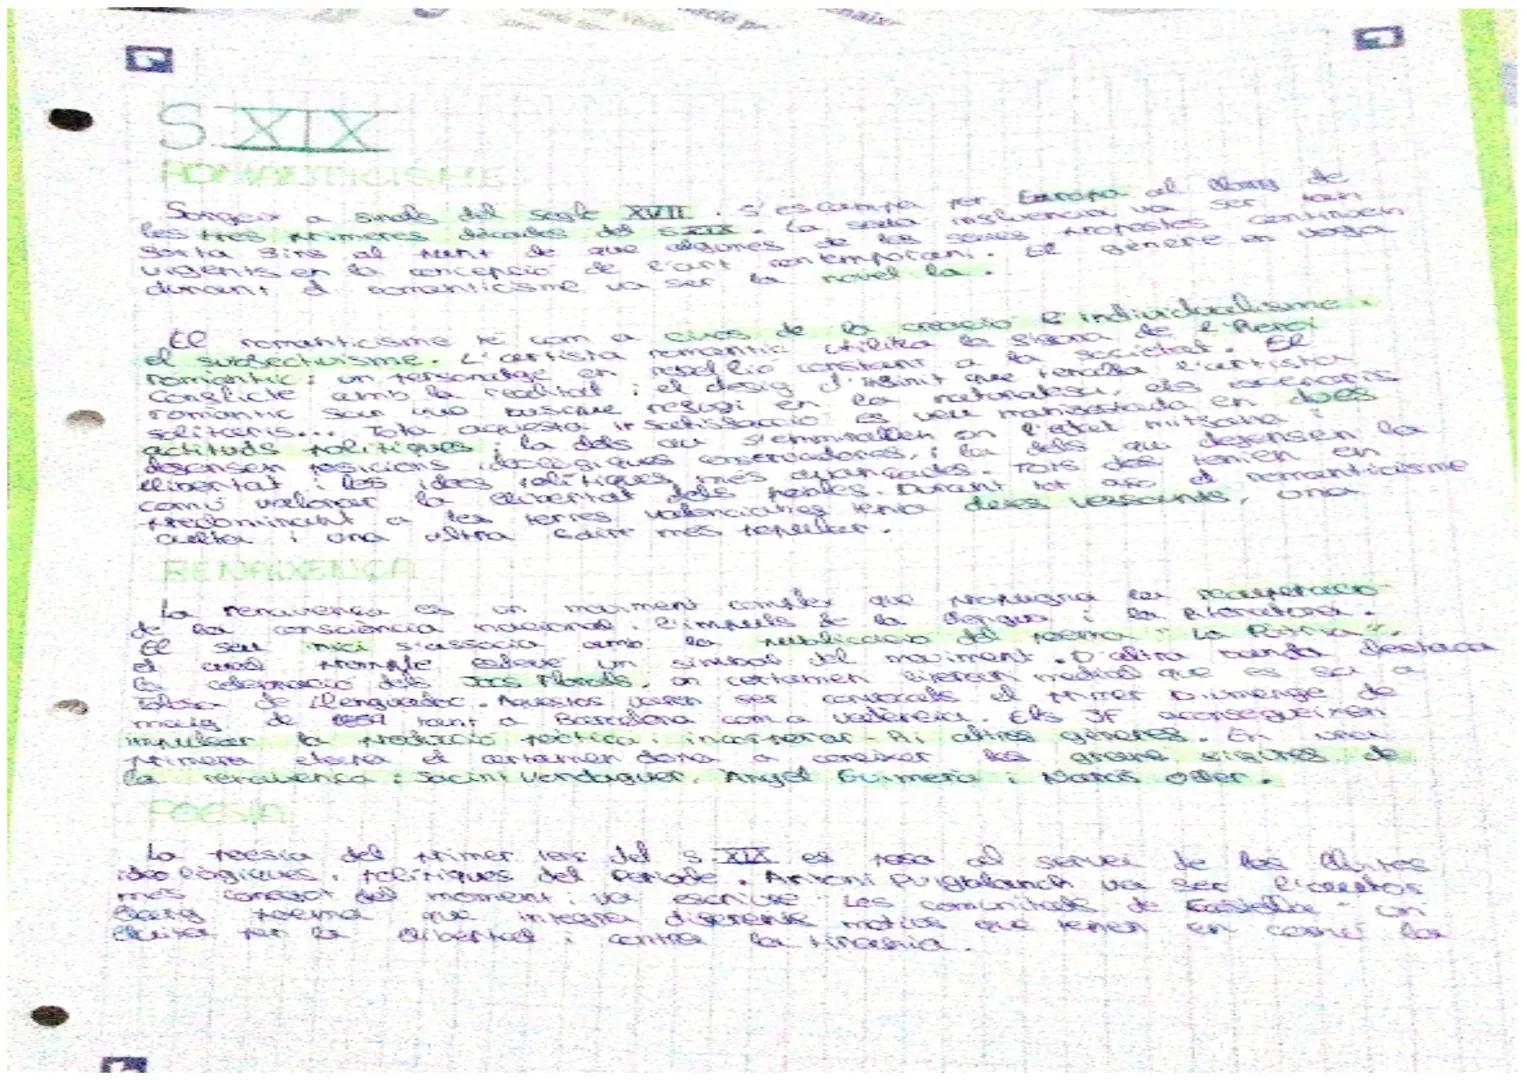 S.XIX
ROMANTICISME
Sorgeix a finals del segle XVIII. S'escampa per Europa al llarg de
les tres primeres dècades del S.XIX. La seva influència va ser tan
forta fins al punt de que algunes de les seues propostes continuen
vigents en la concepció de l'art contemporani. El gènere en voga
durant el romanticisme va ser la novel·la.
El romanticisme té com a eixos de la creació l'individualisme i
el subjectivisme. L'artista romàntic utilitza la figura de l'heroi
romàntic: un personatge en rebel·lió constant a la societat. El
conflicte amb la realitat i el desig d'infinit que l'artista
romàntic fan que busque refugi en la naturalesa, els escenaris
solitaris... Tota aquesta insatisfacció es veu manifestada en dues
actituds polítiques: la dels que s'emmirallen en l'edat mitjana i
defensen posicions ideològiques conservadores, i la dels que defensen la
llibertat i les idees polítiques més avançades. Tots dos tenien en
comú valorar la llibertat dels pobles. Durant tot això el romanticisme
predominant a les terres valencianes tenia dues vessants, una
culta i una altra més popular.
RENAIXENÇA
La renaixença és un moviment complex que propugna la recuperació
de la consciència nacional, l'impuls de la llengua i la literatura.
El seu inici s'associa amb la publicació del poema "La Pàtria",
el qual esdevé un símbol del moviment. D'altra banda destaca
la celebració dels Jocs Florals, un certamen literari medieval que es feia a
Tolosa de Llenguadoc. Aquestos varen ser convocats el primer diumenge de
maig de 1859 tant a Barcelona com a València. Els JF aconsegueixen
impulsar la producció poètica i incorporar-hi altres gèneres. En una
primera etapa el certamen dona a conèixer les grans figures de
la renaixença: Jacint Verdaguer, Àngel Guimerà i Narcís Oller.
POESIA
La poesia del primer terç del S.XIX es posa al servei de les lluites
ideològiques i polítiques del període. Antoni Puigblanch va ser l'escriptor
més conegut del moment i va escriure "Les comunitats de Castella" un
llarg poema que integra diferents motius que tenen en comú la
lluita per la llibertat i contra la tirania.